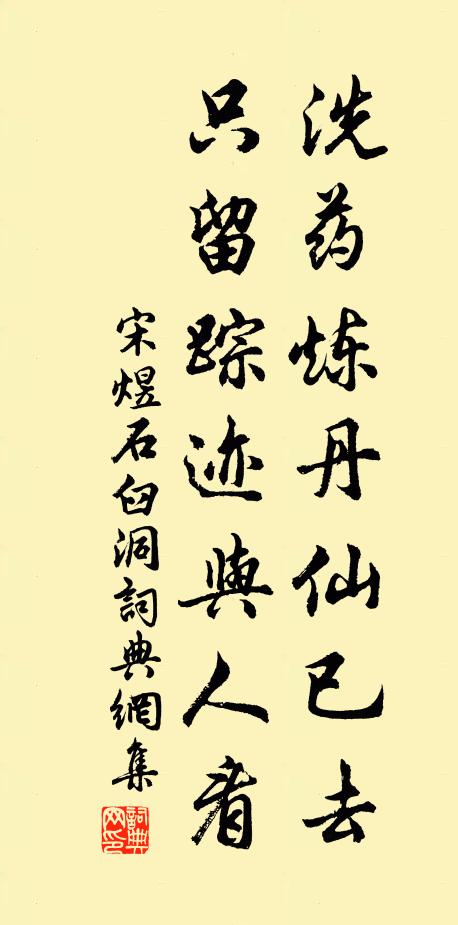 洗药炼丹仙已去
只留踪迹與人看
宋煜石臼洞詞典網集
詞典网印